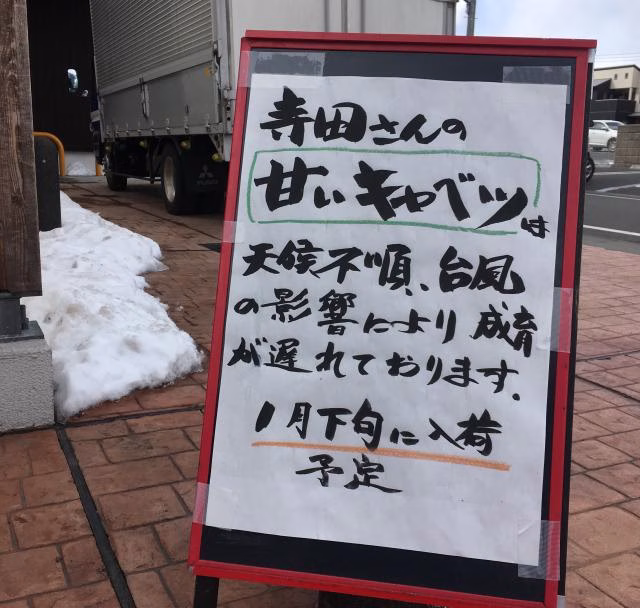 寺田さんの
甘いキャベツは
天候不順、台風
の影響により成育
が遅れております.
1月下旬に入荷
予定
FUSO